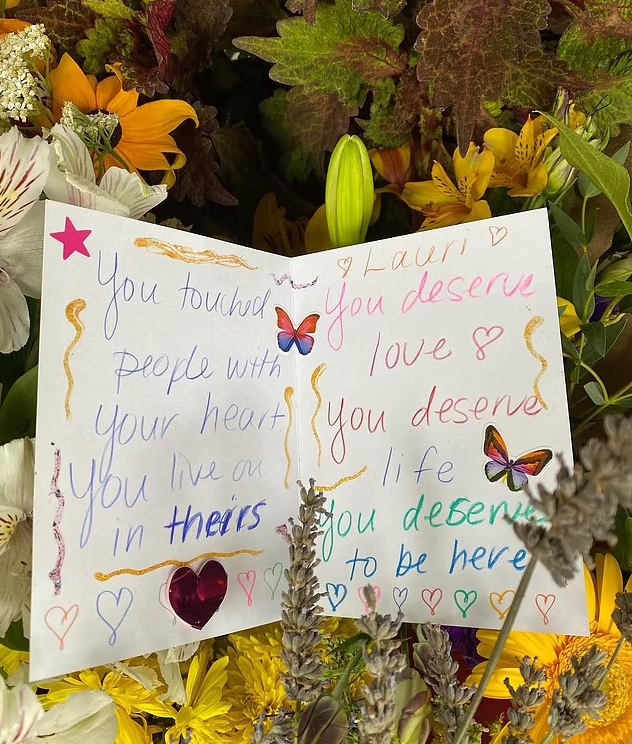 You touched
people with
your heart
You live on
in theirs
Lauri
You deserve
love
you deserve
life
you deserve
to be here